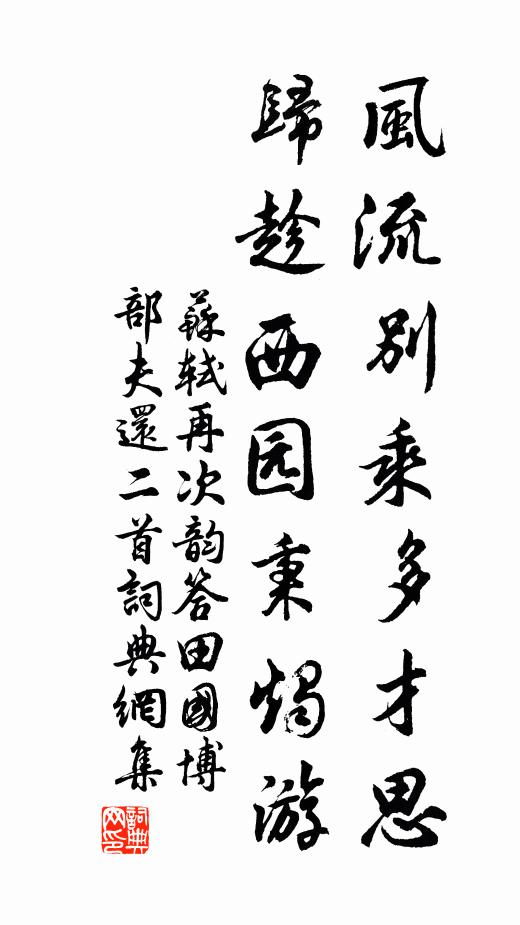 風流別乘多才思
歸趁西园秉燭游
蘇軾再次韵答田國博
部夫還二首詞典網集
詞典网印